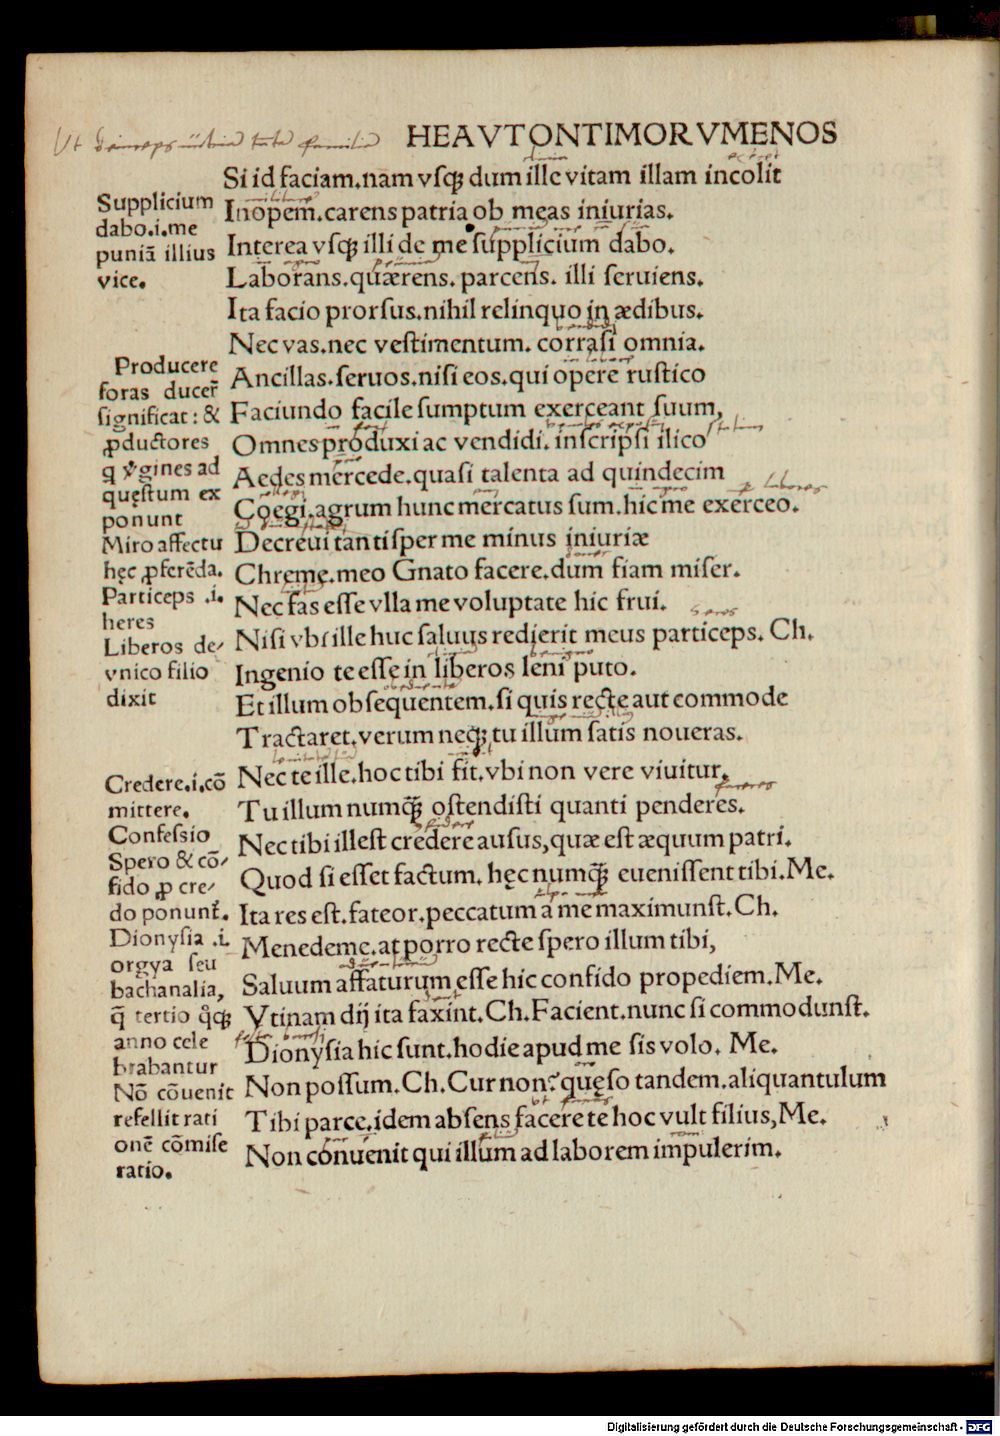 HEAVTONTIMORVMENOS
Si id faciam.nam vsqꝫ dum ille vitam illam incolit
Inopem.carens patria ob meas iniurias.
Interea vsqꝫ illi de me supplicium dabo.
Laborans.quærens. parcens. illi seruiens.
Ita facio prorsus.nihil relinquo in ædibus.
Nec vas.nec vestimentum. corrasi omnia.
Ancillas.seruos.nisi eos.qui opere rustico
Faciundo facile sumptum exerceant suum,
Omnes produxi ac vendidi. inscripsi ilico
Aedes mercede.quasi talenta ad quindecim
Coegi.agrum hunc mercatus sum.hic me exerceo.
Decreui tantisper me minus iniuriæ
Chreme.meo Gnato facere.dum fiam miser.
Nec fas esse vlla me voluptate hic frui.
Nisi vbi ille huc saluus redierit meus particeps. Ch.
Ingenio te esse in liberos leni puto.
Et illum obsequentem.si quis recte aut commode
Tractaret.verum neqꝫ tu illum satis noueras.
Nec te ille.hoc tibi fit.vbi non vere viuitur.
Tu illum numq̃ꝫ ostendisti quanti penderes.
Nec tibi illest credere ausus,quæ est æquum patri.
Quod si esset factum. hęc numq̃ꝫ euenissent tibi.Me.
Ita res est.fateor.peccatum a me maximunst.Ch.
Menedeme.at porro recte spero illum tibi,
Saluum affaturum esse hic confido propediem.Me.
Vtinam dij ita faxint.Ch.Facient.nunc si commodunst.
Dionysia hic sunt.hodie apud me sis volo. Me.
Non possum.Ch.Cur non?quęso tandem.aliquantulum
Tibi parce.idem absens facere te hoc vult filius,Me.
Non conuenit qui illum ad laborem impulerim.
Supplicium
dabo.i.me
puniã illius
vice.
Producere
foras ducer̃
significat: &
ꝓductores
q v̓gines ad
quęstum ex
ponunt
Miro affectu
hęc ꝓferẽda.
Particeps .i.
heres
Liberos de⸗
vnico filio
dixit
Credere.i.cõ
mittere.
Confessio
Spero & cõ⸗
fido ꝓ cre⸗
do ponunt̃.
Dionysia .i.
orgya seu
bachanalia,
q̃ tertio q̊qꝫ
anno cele
brabantur
Nõ cõuenit
refellit rati
onẽ cõmise
ratio.
Digitalisierung gefördert durch die Deutsche Forschungsgemeinschaft - DFG